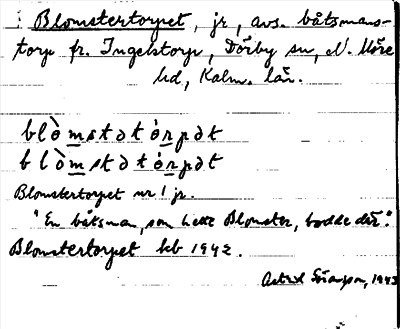 : Blomstertorpet, jr, avs. båtsmans-
torp fr. Ingelstorp, Dörby sn, N. Möre
hd, Kalm. län.
blò̀mstət ò̀rpət
blò̀mstət ò̀rpət
Blomstertorpet nr 1 jr.
"En båtsman, som hette Blomster, bodde där."
Blomstertorpet kb 1942.
Astrid 1943